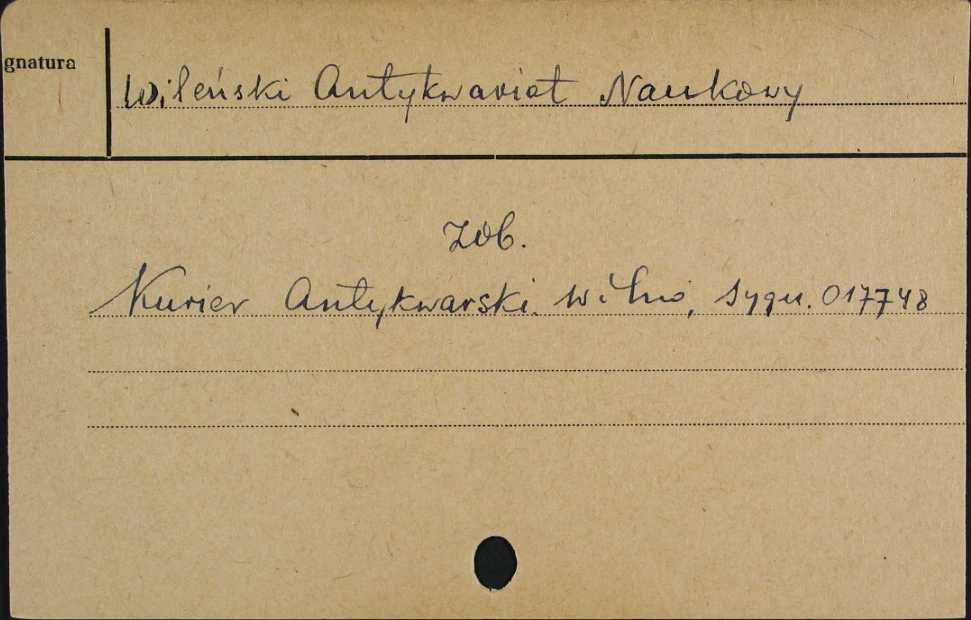 gnatura
Wileński Antykwariat Naukowy
Zob.
Kurier Antykwarski. Wilno, Sygn. 017748